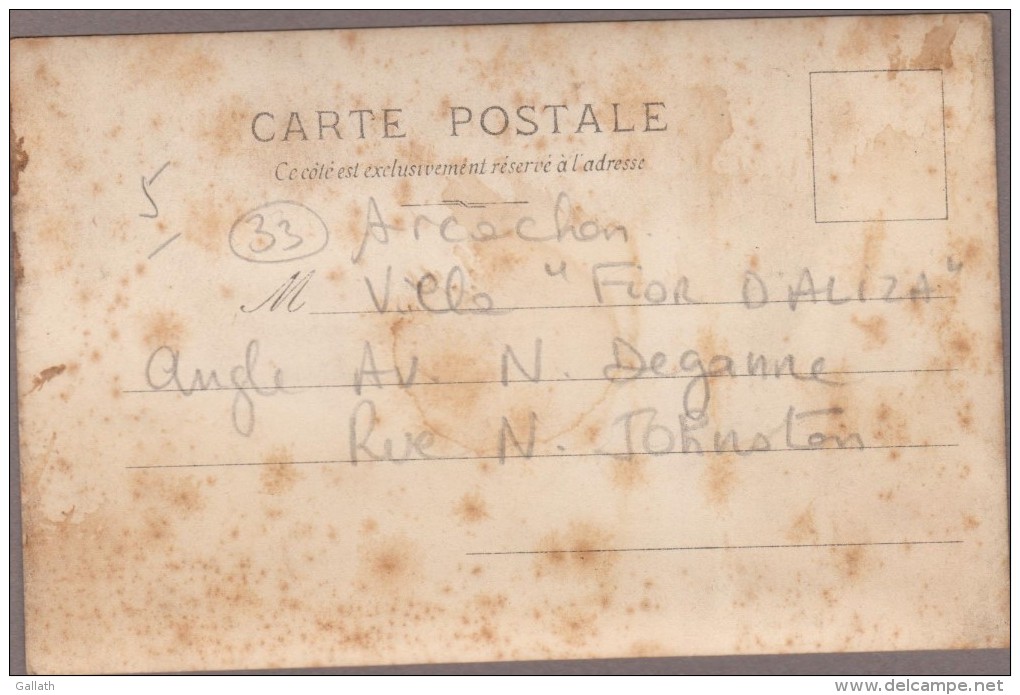 CARTE POSTALE
Ce côté est exclusivement réservé à l'adresse
5
33 Arcachon
M Villa "FIOR D'ALIZA"
angle AV. N. Deganne
Rue N. JOhnston
Gallath
www.delcampe.net